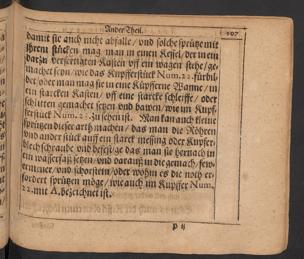 Ander Theil. 107
damit sie auch nicht abfalle / und solche sprütze mit
ihren stücken mag man in einen Kessel / der in ein
darzu verfertigten Kasten vff ein wagen stehe / ge-
machet seyn / wie das Kupfferstück Num. 22. fürbil-
det oder man mag sie in eine Küpfferne Wanne / in
ein starcken Kasten / vff eine starcke schleiffe / oder
schlitten gemachet setzen und bawen / wie im Kupf-
ferstück Num. zu sehen ist. Man kan auch kleine
sprützen dieser arth machen / das man die Röhren
und ander stück auff ein starck messing oder Kupfer-
blech schraube und befestige das man sie hernach in
ein wasserfaß setzen / und daraus in die gemach / few-
ermeuer / und schorstein / oder wohin es die noth er-
fordert sprützen möge / wie auch im Kupffer Num.
22. mit A. bezeichnet ist.
P ij